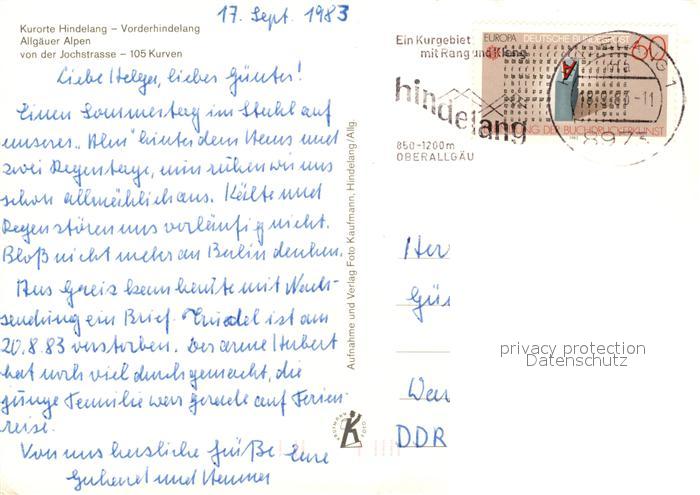 17. Sept. 1983
Kurorte Hindelang – Vorderhindelang
Allgäuer Alpen
von der Jochstrasse – 105 Kurven
Liebe Helga, lieber Günter!
Einen Sommertag im Stuhl auf
unserer „Alm" hinter dem Haus und
zwei Regentage, nun ruhen wir uns
schon allmählich aus. Kälte und
Regen stören uns vorläufig nicht.
Bloß nicht mehr an Berlin denken.
Aus Greiz kam heute mit Nach-
sendung ein Brief. Trudel ist am
20.8.83 verstorben. Der arme Herbert
hat noch viel durchgemacht, die
junge Familie war gerade auf Ferien-
reise.
Von uns herzliche Grüße Eure
und
Aufnahme und Verlag Foto Kaufmann, Hindelang/Allg.
Ein Kurgebiet
mit Rang und Klang
hindelang
850-1200m
OBERALLGÄU
EUROPA DEUTSCHE BUNDESPOST 60
A
18.9.83-11
8973
1
BUCHDRUCKERKUNST
Her
Gün
War
DDR
privacy protection
Datenschutz